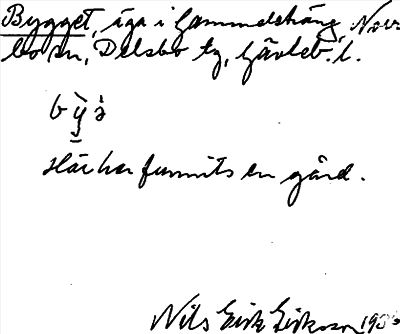 Bygget, äga i Gammelsträng, Nors-
bo sn, Delsbo tg, Gävleb. l.
Här har funnits en gård.
Nils Erik Eriksson